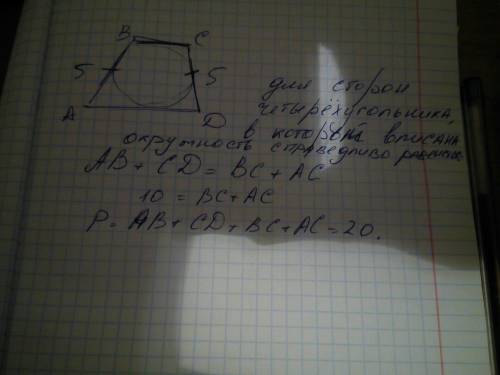 B C
5 5
A D
для сторон
четырёхугольника,
в который вписана
окружность справедливо равенство
AB + CD = BC + AC
10 = BC + AC
P = AB + CD + BC + AC = 20.